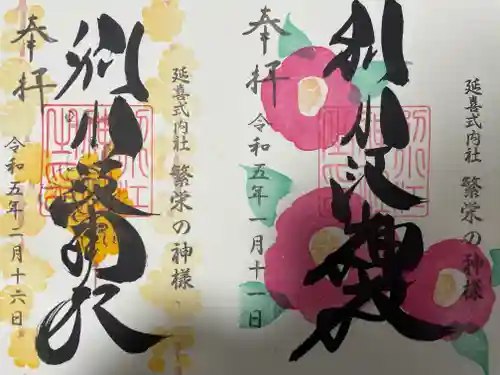 奉拝
別小江神社
延喜式内社 繁栄の神様
令和五年一月十一日
奉拝
延喜式内社 繁栄の神様
令和五年二月十六日